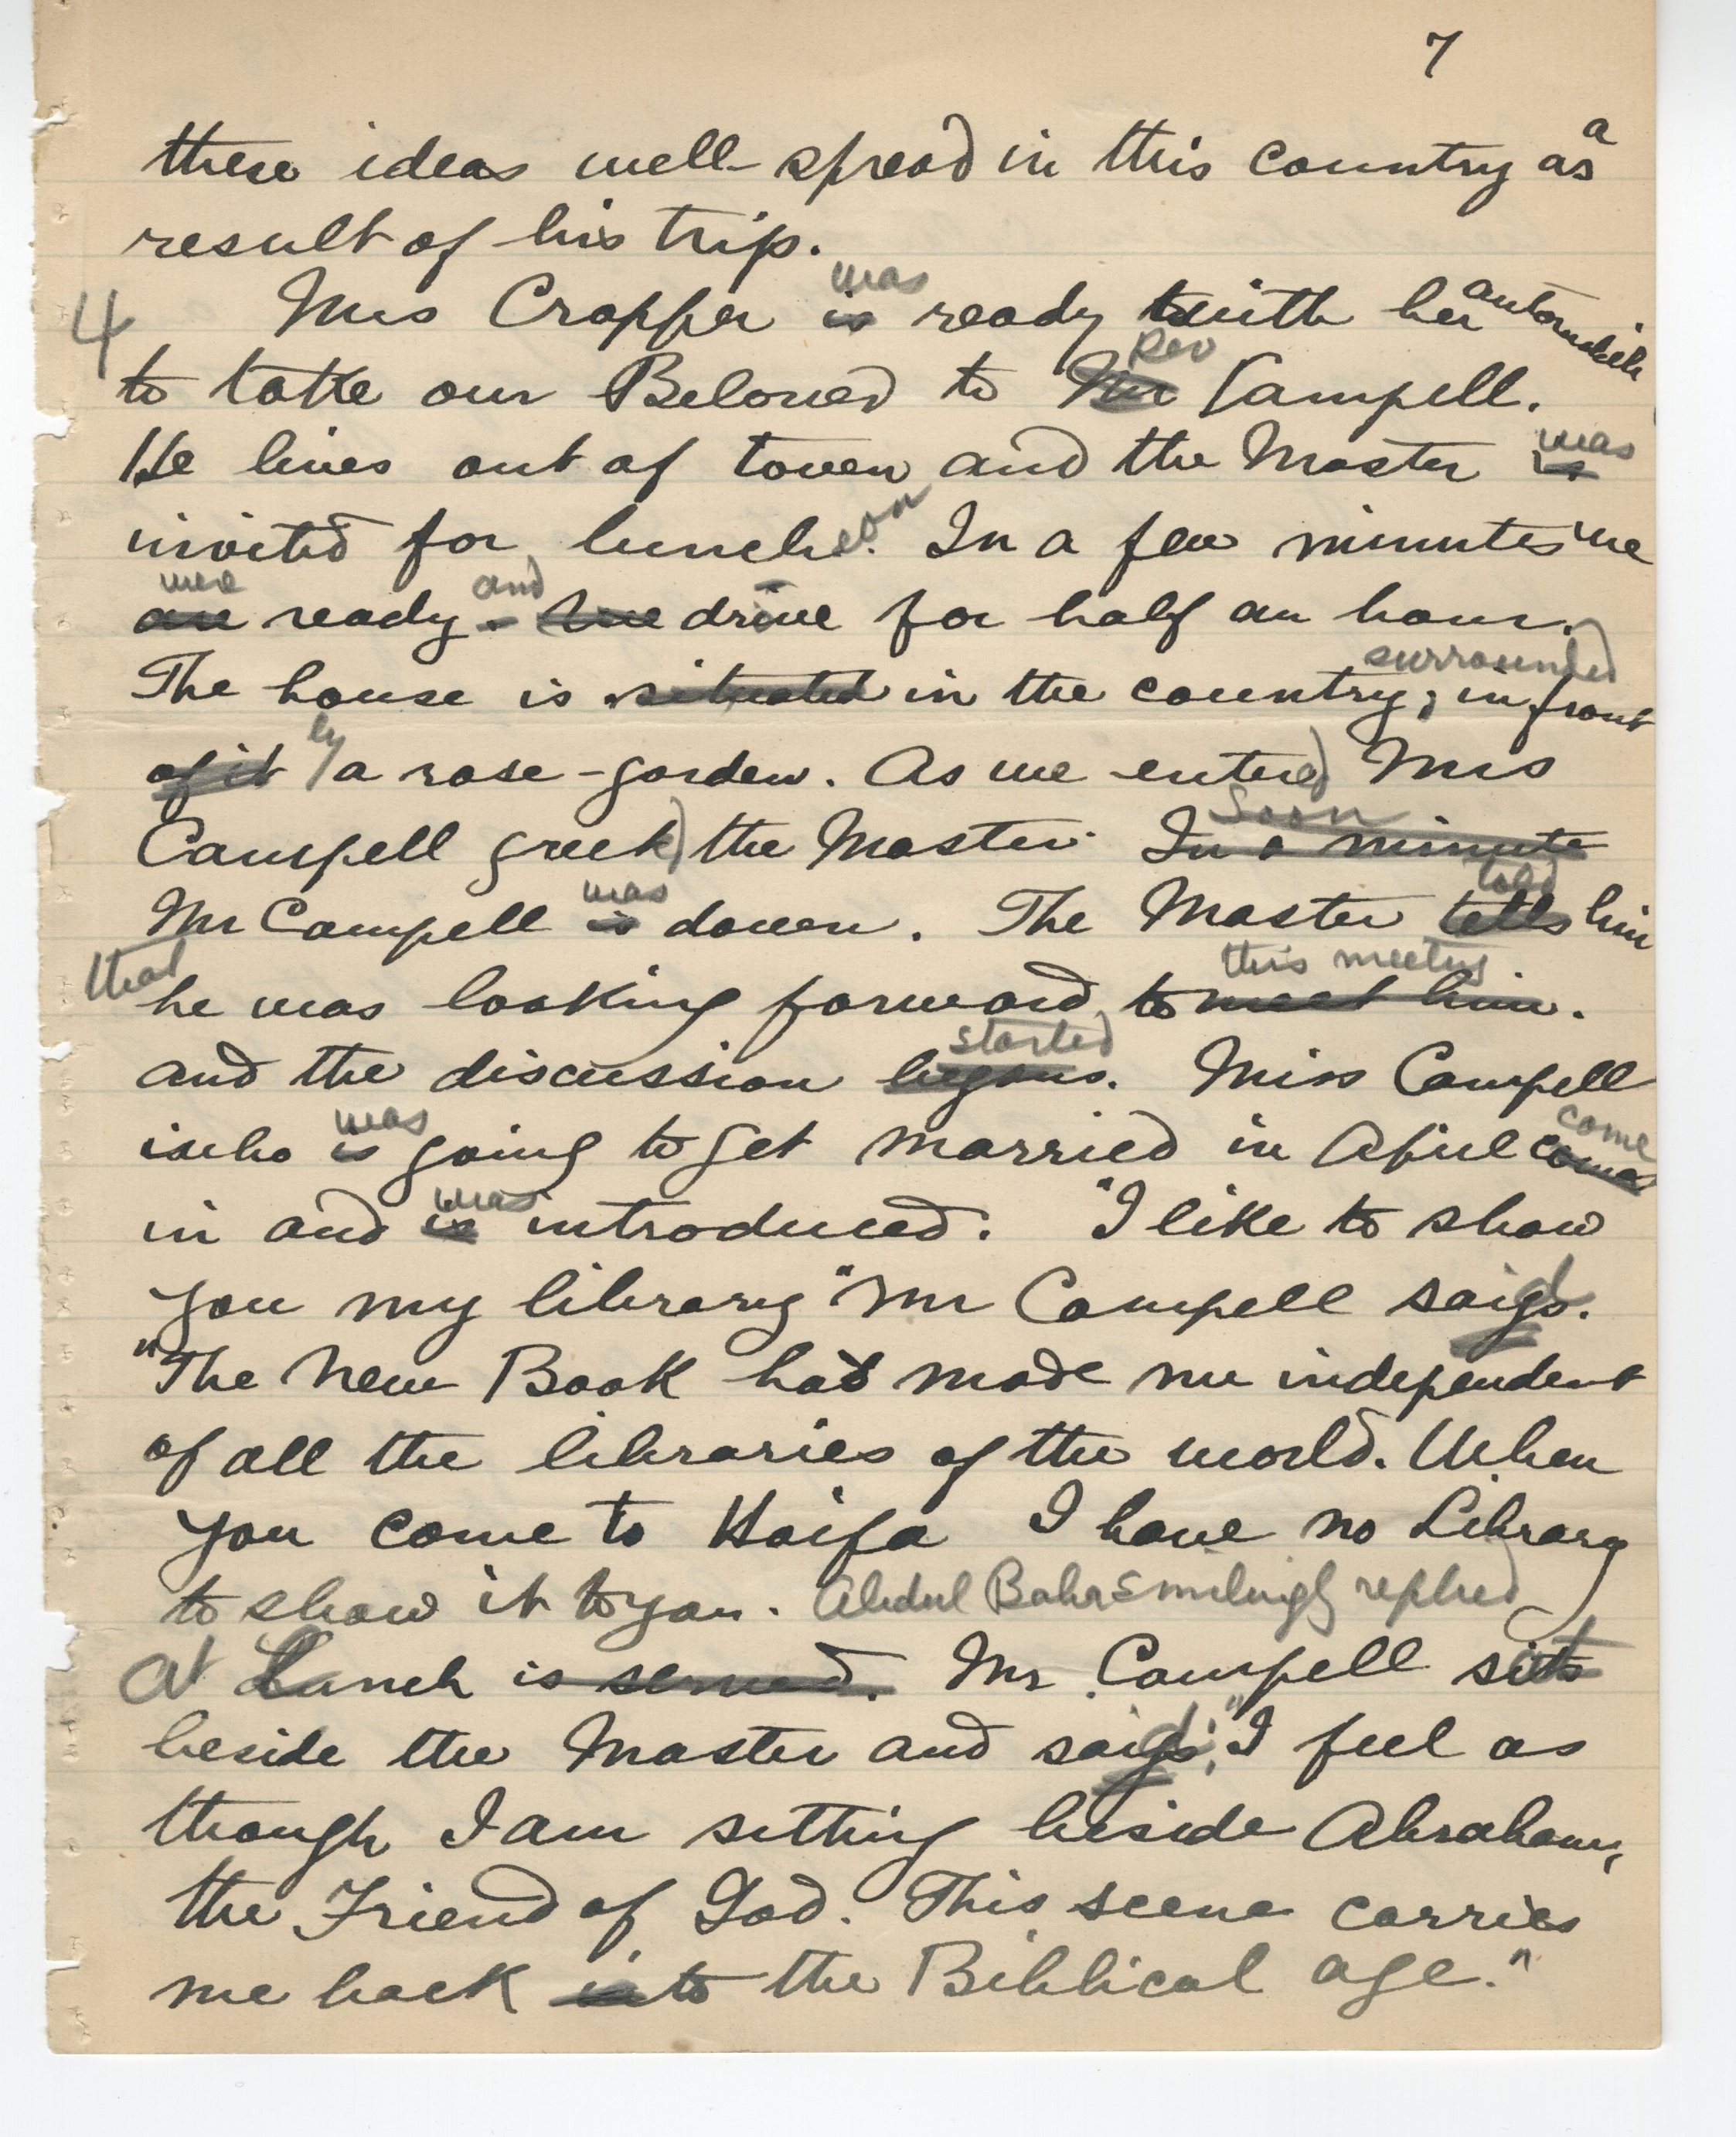 7
these ideas well spread in this country as a
result of his trip.
4 Mrs Cropper is was ready with her automobile
to take our Beloved to Mr Rev Campell.
He lives out of town and the Master is was
invited for luncheon. In a few minutes we
are were ready. and We drive for half an hour.
The house is situated in the country, surrounded in front
of it by a rose-garden. As we entered Mrs
Campell greeted the Master. In a minute Soon
Mr Campell is was down. The Master tells told him
that he was looking forward to meet him. this meeting
and the discussion begans. started Miss Campell
who is was going to get married in April comes come
in and is was introduced. "I like to show
you my library" Mr Campell said.
"The New Book has made me independent
of all the libraries of the world. When
you come to Haifa I have no Library
to show it to you. Abdul Baha smilingly replied
At Lunch is served. Mr. Campell sits
beside the Master and said: "I feel as
though I am sitting beside Abraham,
the Friend of God. This scene carries
me back into the Biblical age."